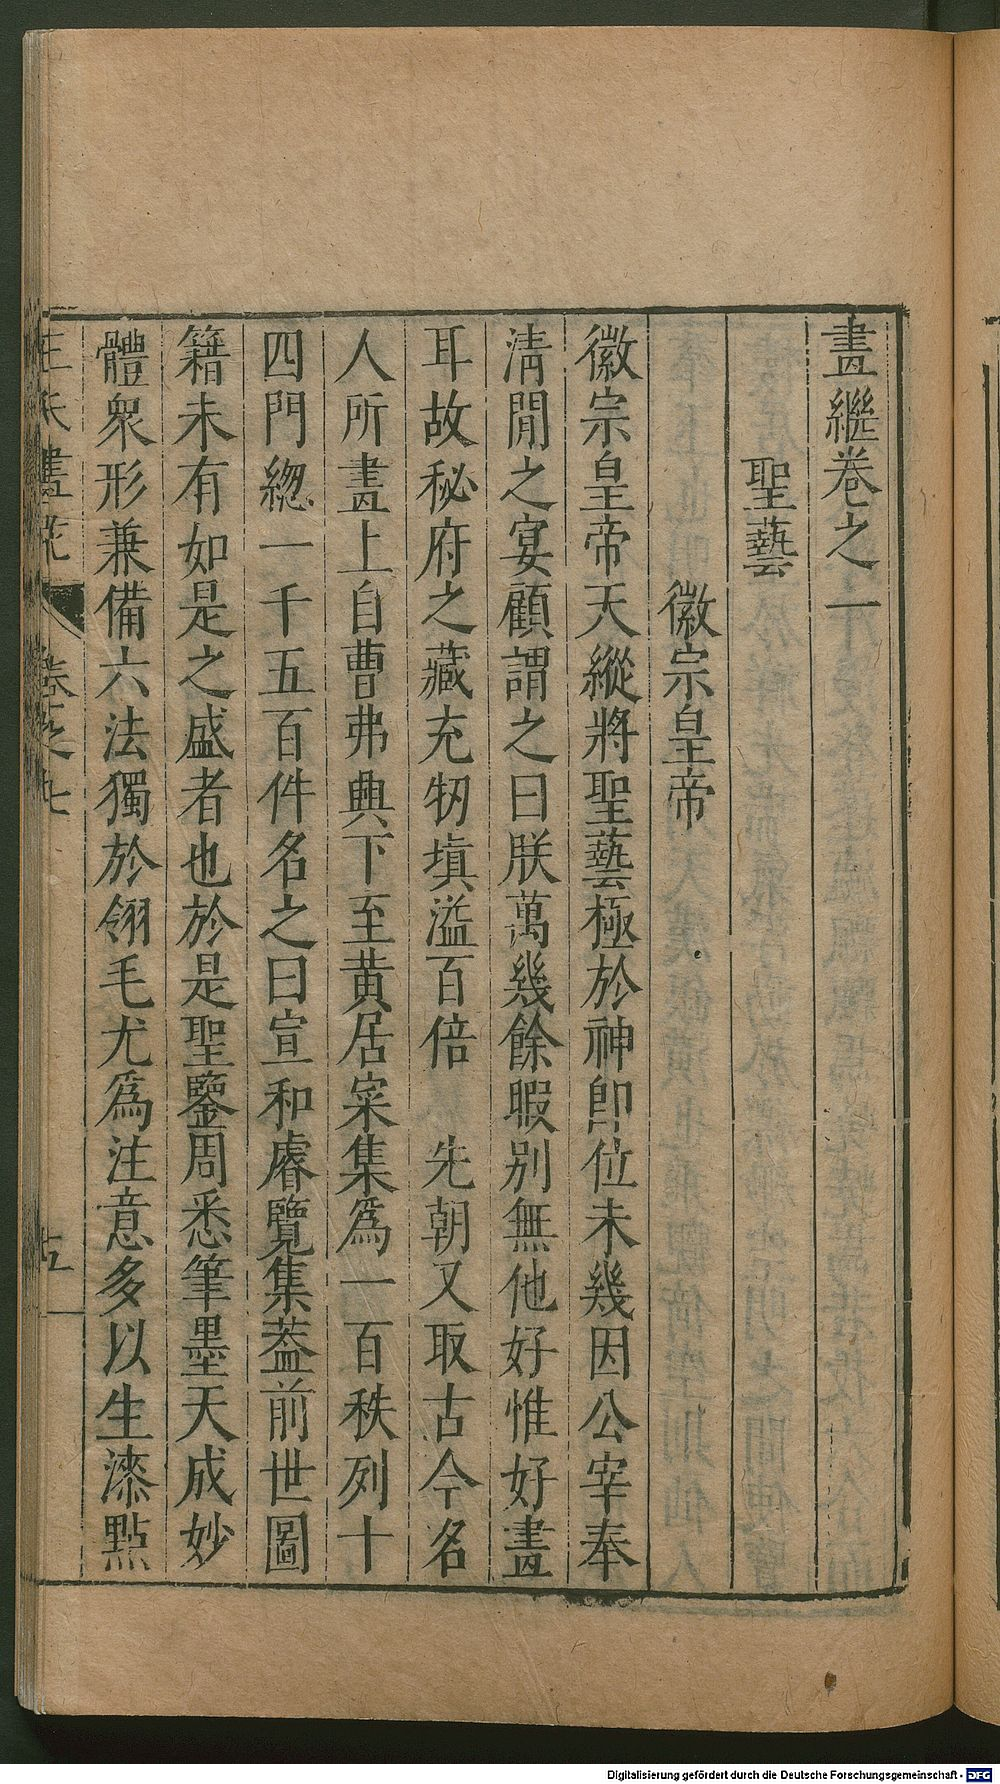 畫繼卷之一
聖藝
徽宗皇帝
徽宗皇帝天縱將聖藝極於神卽位未幾因公宰奉
清閒之宴顧謂之曰朕萬幾餘暇別無他好惟好畫
耳故秘府之藏充牣塡溢百倍　先朝又取古今名
人所畫上自曹弗興下至黃居寀集爲一百秩列十
四門緫一千五百件名之曰宣和睿覽集葢前世圖
籍未有如是之盛者也於是聖鑒周悉筆墨天成妙
體衆形兼備六法獨於翎毛尤爲注意多以生漆點
王氏畫苑
卷之七
Digitalisierung gefördert durch die Deutsche Forschungsgemeinschaft - DFG